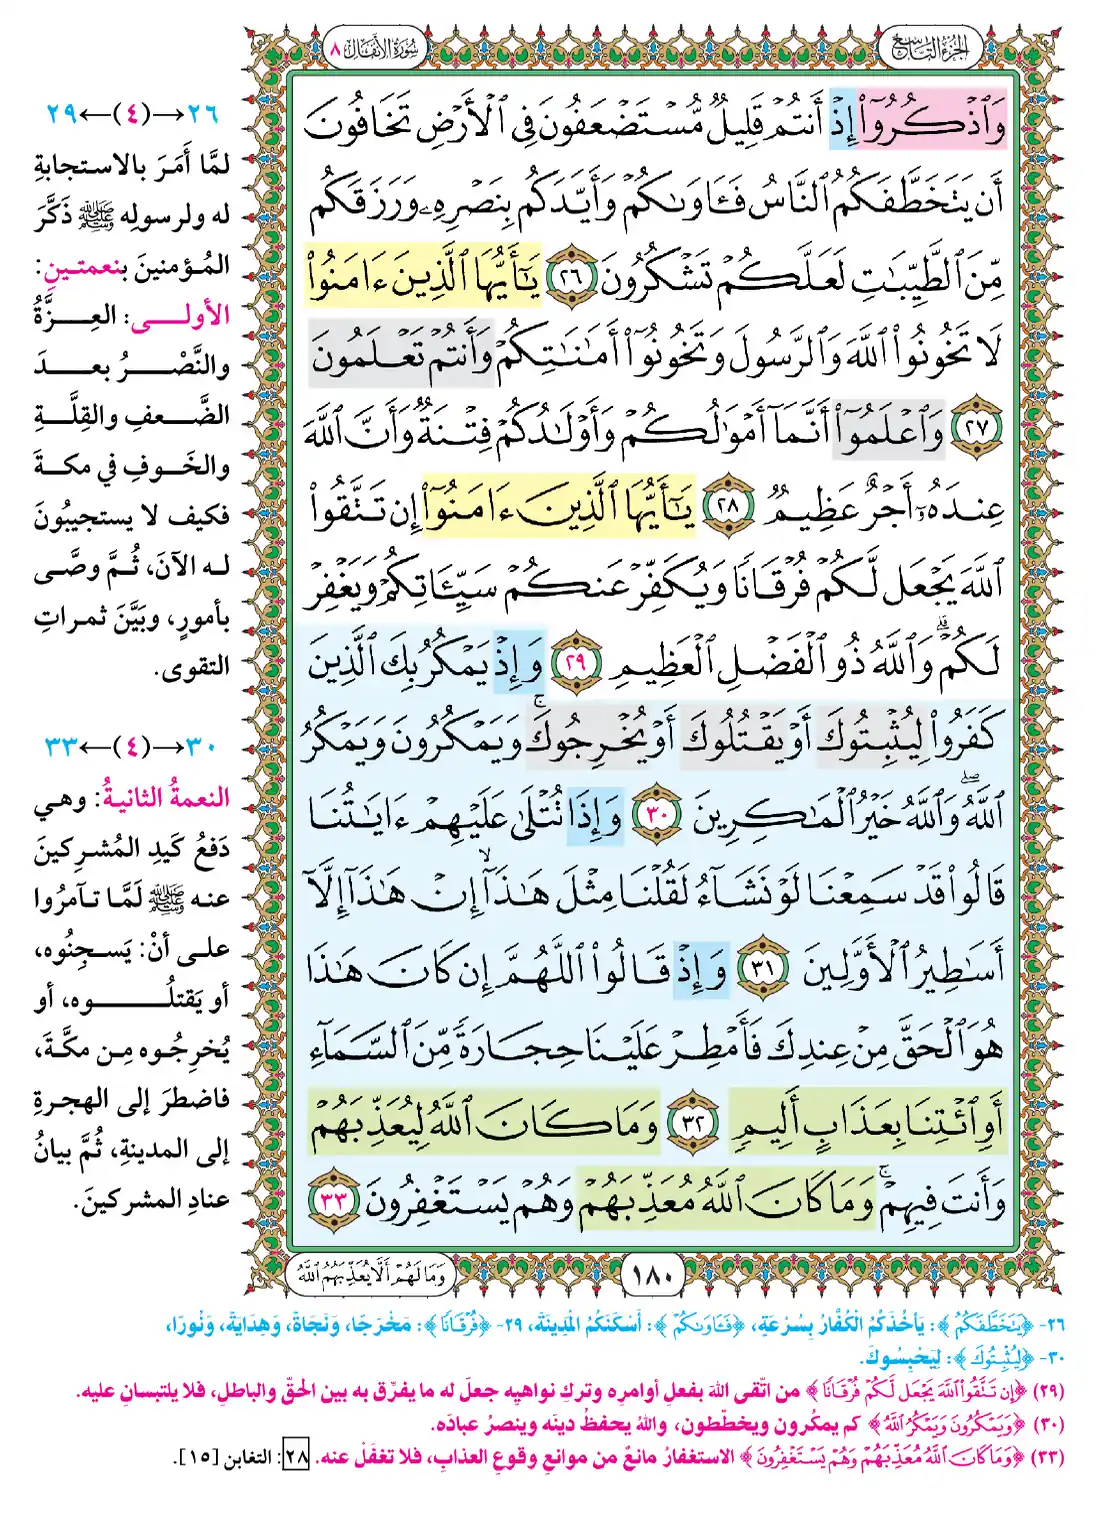 الجزء التاسع
سورة الأنفال ٨
وَٱذۡكُرُوٓاْ إِذۡ أَنتُمۡ قَلِيلٞ مُّسۡتَضۡعَفُونَ فِي ٱلۡأَرۡضِ تَخَافُونَ
أَن يَتَخَطَّفَكُمُ ٱلنَّاسُ فَـَٔاوَىٰكُمۡ وَأَيَّدَكُم بِنَصۡرِهِۦ وَرَزَقَكُم
مِّنَ ٱلطَّيِّبَٰتِ لَعَلَّكُمۡ تَشۡكُرُونَ ٢٦ يَٰٓأَيُّهَا ٱلَّذِينَ ءَامَنُواْ
لَا تَخُونُواْ ٱللَّهَ وَٱلرَّسُولَ وَتَخُونُوٓاْ أَمَٰنَٰتِكُمۡ وَأَنتُمۡ تَعۡلَمُونَ
٢٧ وَٱعۡلَمُوٓاْ أَنَّمَآ أَمۡوَٰلُكُمۡ وَأَوۡلَٰدُكُمۡ فِتۡنَةٞ وَأَنَّ ٱللَّهَ
عِندَهُۥٓ أَجۡرٌ عَظِيمٞ ٢٨ يَٰٓأَيُّهَا ٱلَّذِينَ ءَامَنُوٓاْ إِن تَتَّقُواْ
ٱللَّهَ يَجۡعَل لَّكُمۡ فُرۡقَانٗا وَيُكَفِّرۡ عَنكُمۡ سَيِّـَٔاتِكُمۡ وَيَغۡفِرۡ
لَكُمۡۗ وَٱللَّهُ ذُو ٱلۡفَضۡلِ ٱلۡعَظِيمِ ٢٩ وَإِذۡ يَمۡكُرُ بِكَ ٱلَّذِينَ
كَفَرُواْ لِيُثۡبِتُوكَ أَوۡ يَقۡتُلُوكَ أَوۡ يُخۡرِجُوكَۚ وَيَمۡكُرُونَ وَيَمۡكُرُ
ٱللَّهُۖ وَٱللَّهُ خَيۡرُ ٱلۡمَٰكِرِينَ ٣٠ وَإِذَا تُتۡلَىٰ عَلَيۡهِمۡ ءَايَٰتُنَا
قَالُواْ قَدۡ سَمِعۡنَا لَوۡ نَشَآءُ لَقُلۡنَا مِثۡلَ هَٰذَآۙ إِنۡ هَٰذَآ إِلَّآ
أَسَٰطِيرُ ٱلۡأَوَّلِينَ ٣١ وَإِذۡ قَالُواْ ٱللَّهُمَّ إِن كَانَ هَٰذَا
هُوَ ٱلۡحَقَّ مِنۡ عِندِكَ فَأَمۡطِرۡ عَلَيۡنَا حِجَارَةٗ مِّنَ ٱلسَّمَآءِ
أَوِ ٱئۡتِنَا بِعَذَابٍ أَلِيمٖ ٣٢ وَمَا كَانَ ٱللَّهُ لِيُعَذِّبَهُمۡ
وَأَنتَ فِيهِمۡۚ وَمَا كَانَ ٱللَّهُ مُعَذِّبَهُمۡ وَهُمۡ يَسۡتَغۡفِرُونَ ٣٣
١٨٠
وَمَا لَهُمۡ أَلَّا يُعَذِّبَهُمُ ٱللَّهُ
٢٦→(٤)←٢٩
لمَّا أَمَرَ بالاستجابةِ
له ولرسولِه ﷺ ذَكَّرَ
المُؤمنينَ بنعمتينِ:
الأولى: العِزَّةُ
والنَّصْرُ بعدَ
الضَّعفِ والقِلَّةِ
والخَوفِ في مكةَ
فكيف لا يستجيبُونَ
له الآنَ، ثُمَّ وصَّى
بأمورٍ، وبَيَّنَ ثمراتِ
التقوى.
٣٠→(٤)←٣٣
النعمةُ الثانيةُ: وهي
دَفعُ كَيدِ المُشركينَ
عنه ﷺ لَمَّا تآمرُوا
على أنْ: يَسجِنُوه،
أو يَقتلُوه، أو
يُخرِجُوه مِن مكَّةَ،
فاضطرَ إلى الهجرةِ
إلى المدينةِ، ثُمَّ بيانُ
عنادِ المشركينَ.
٢٦- ﴿يَتَخَطَّفَكُمُ﴾: يَأْخُذَكُمُ الْكُفَّارُ بِسُرْعَةٍ، ﴿فَـَٔاوَىٰكُمۡ﴾: أَسْكَنَكُمُ المَدِينَةَ، ٢٩- ﴿فُرۡقَانٗا﴾: مَخْرَجًا، وَنَجَاةً، وَهِدَايَةً، وَنُورًا،
٣٠- ﴿لِيُثۡبِتُوكَ﴾: لِيَحْبِسُوكَ.
(٢٩) ﴿إِن تَتَّقُواْ ٱللَّهَ يَجۡعَل لَّكُمۡ فُرۡقَانٗا﴾ من اتّقى اللهَ بفعلِ أوامرِه وتركِ نواهيِه جعلَ له ما يفرِّق به بين الحقّ والباطلِ، فلا يلتبسانِ عليه.
(٣٠) ﴿وَيَمۡكُرُونَ وَيَمۡكُرُ ٱللَّهُ﴾ كم يمكُرون ويخطّطون، واللهُ يحفظُ دينَه وينصرُ عبادَه.
(٣٣) ﴿وَمَا كَانَ ٱللَّهُ مُعَذِّبَهُمۡ وَهُمۡ يَسۡتَغۡفِرُونَ﴾ الاستغفارُ مانعٌ من موانعِ وقوعِ العذابِ، فلا تغفَلْ عنه. ٢٨: التغابن [١٥].